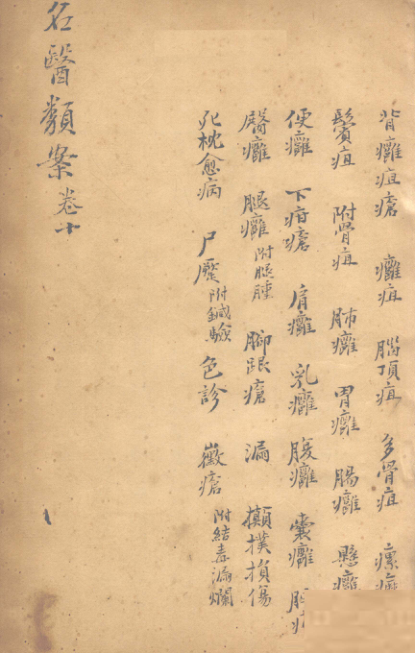 背癰疽瘡 癰疽 腦頂疽 多骨疽 瘰
鬢疽 附骨疽 肺癰 胃癰 腸癰 懸癰
便癰 下疳瘡 肩癰 乳癰 腹癰 囊癰
臀癰 腿癰 附腿腫 脚跟瘡 漏 攧撲損傷
死枕愈病 尸魘 附鍼驗 色診 黴瘡 附結毒漏爛
名醫類案 卷十